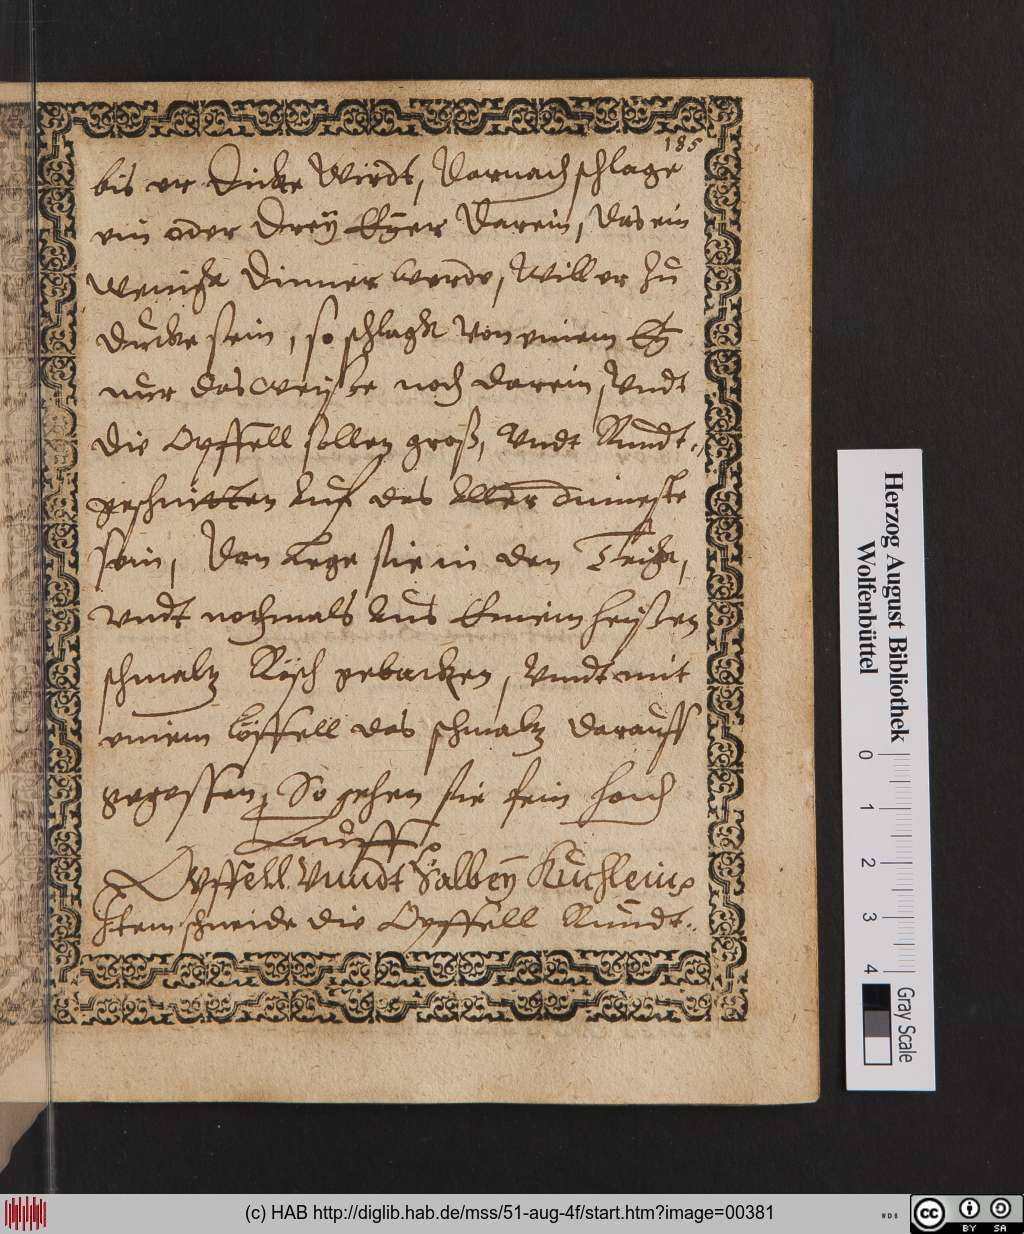 185
bis er Dicke Wirdt, Darnach schlage
ein oder Drey Eÿer Darein, Das ein
Wenigk Dinner werde, Will er zu
Dicke sein, so schlagk Von einem Eÿ
nur das Weyße noch darein, Vndt
die Öpffell sollen groß, Vndt Rundt..
geschnitten Auf das Aller dinneste
sein, Dan Lege sie in den Teigk,
vndt nochmals Aus Einem heyßen
schmaltz Rösch gebacken, Vndt mit
einem löffell das schmaltz darauff
gegossen, So gehen sie fein hoch
Auff.
Öpffell Vnndt Salbey Küchlein
Item schneide die Öpffell Rundt..
Herzog August Bibliothek
Wolfenbüttel
0
1
2
3
4
Gray Scale
(c) HAB http://diglib.hab.de/mss/51-aug-4f/start.htm?image=00381
WDB
cc
BY SA